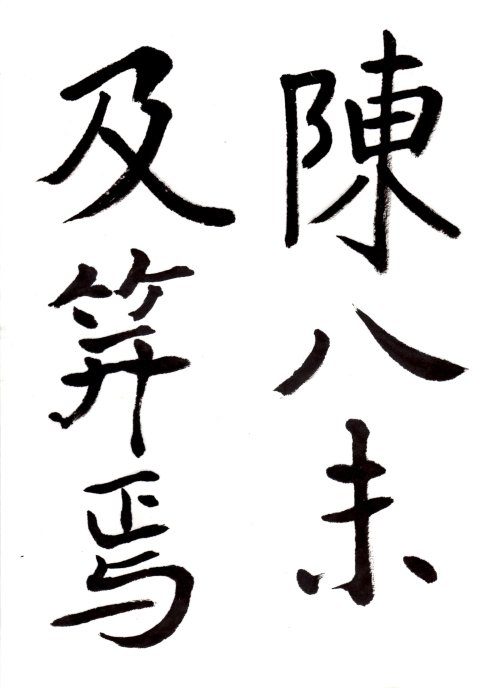 陳八未
及笄焉